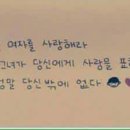 여자를 사랑해라
그녀가 당신에게 사랑을 표
정말 당신밖에 없다